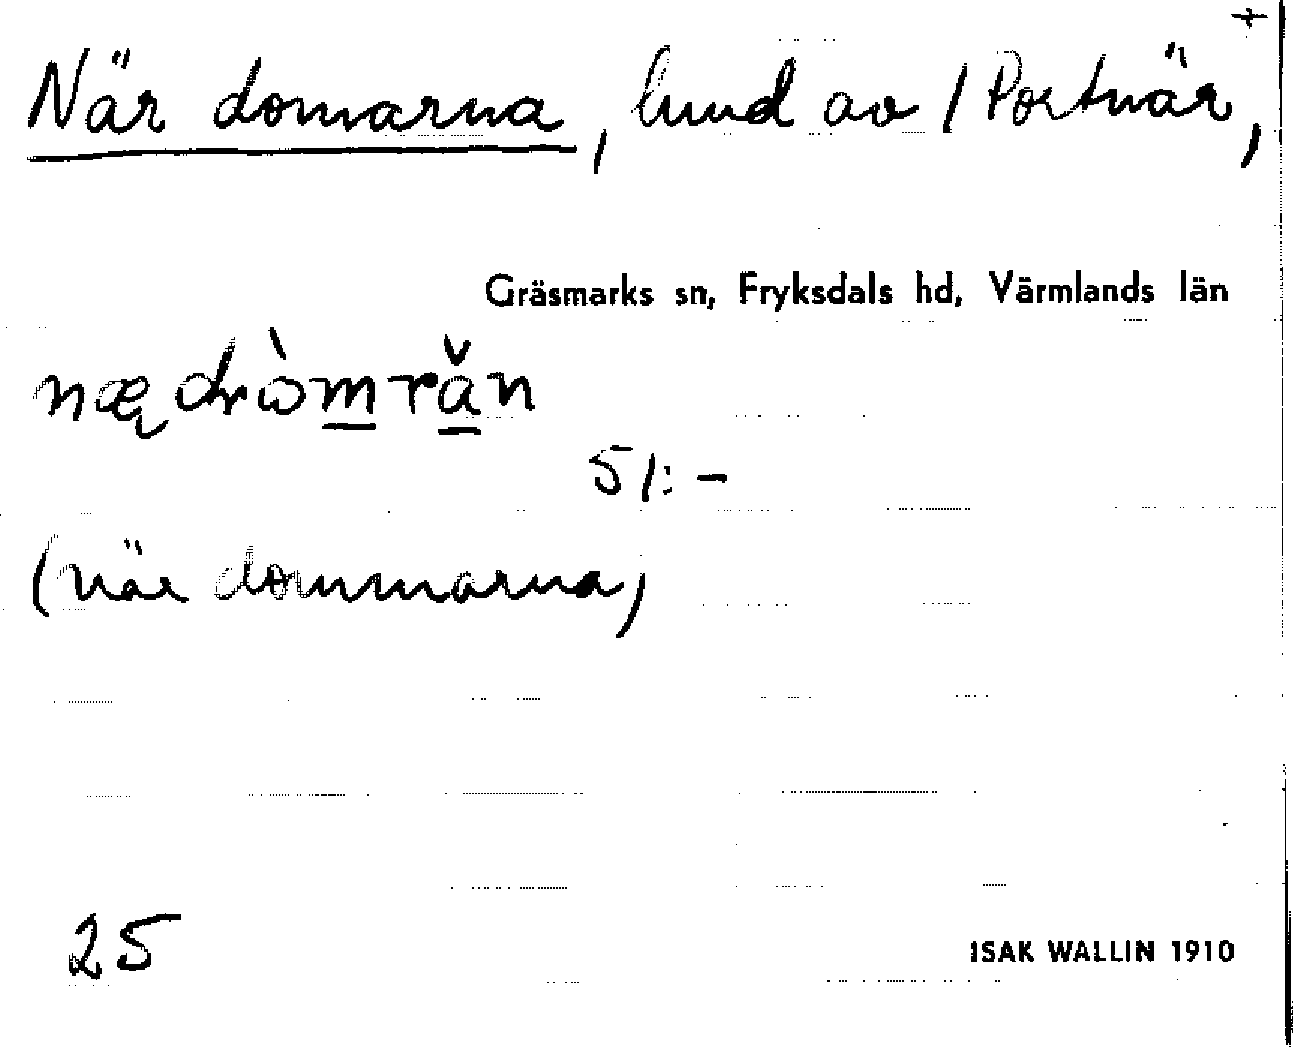 +
När domarna, hund av 1 Portnär,
Gräsmarks sn, Fryksdals hd, Värmlands län
51:-
(när dommarna)
25
ISAK WALLIN 1910